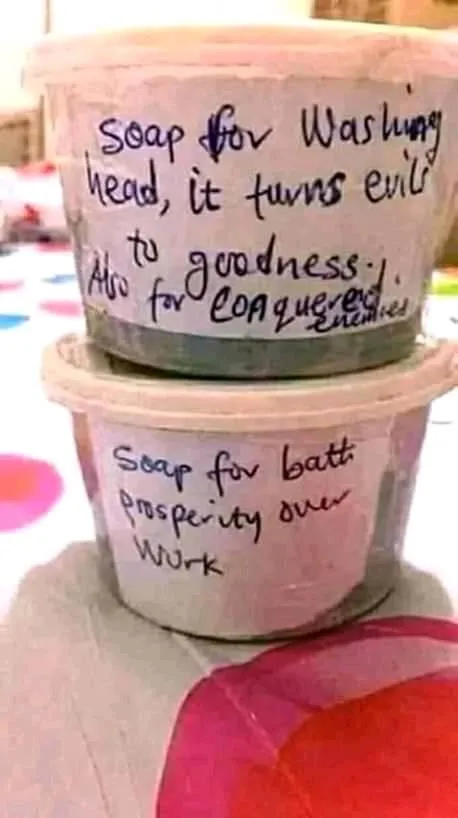 Soap for Washing
head, it turns evils
to goodness.
Also for conquered
enemies
Soap for bath
prosperity over
Work